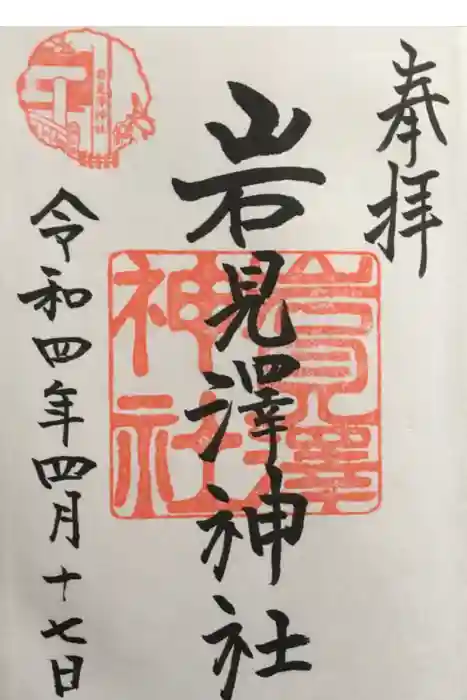 奉拝
岩見澤神社
岩見澤
神社
令和四年四月十七日